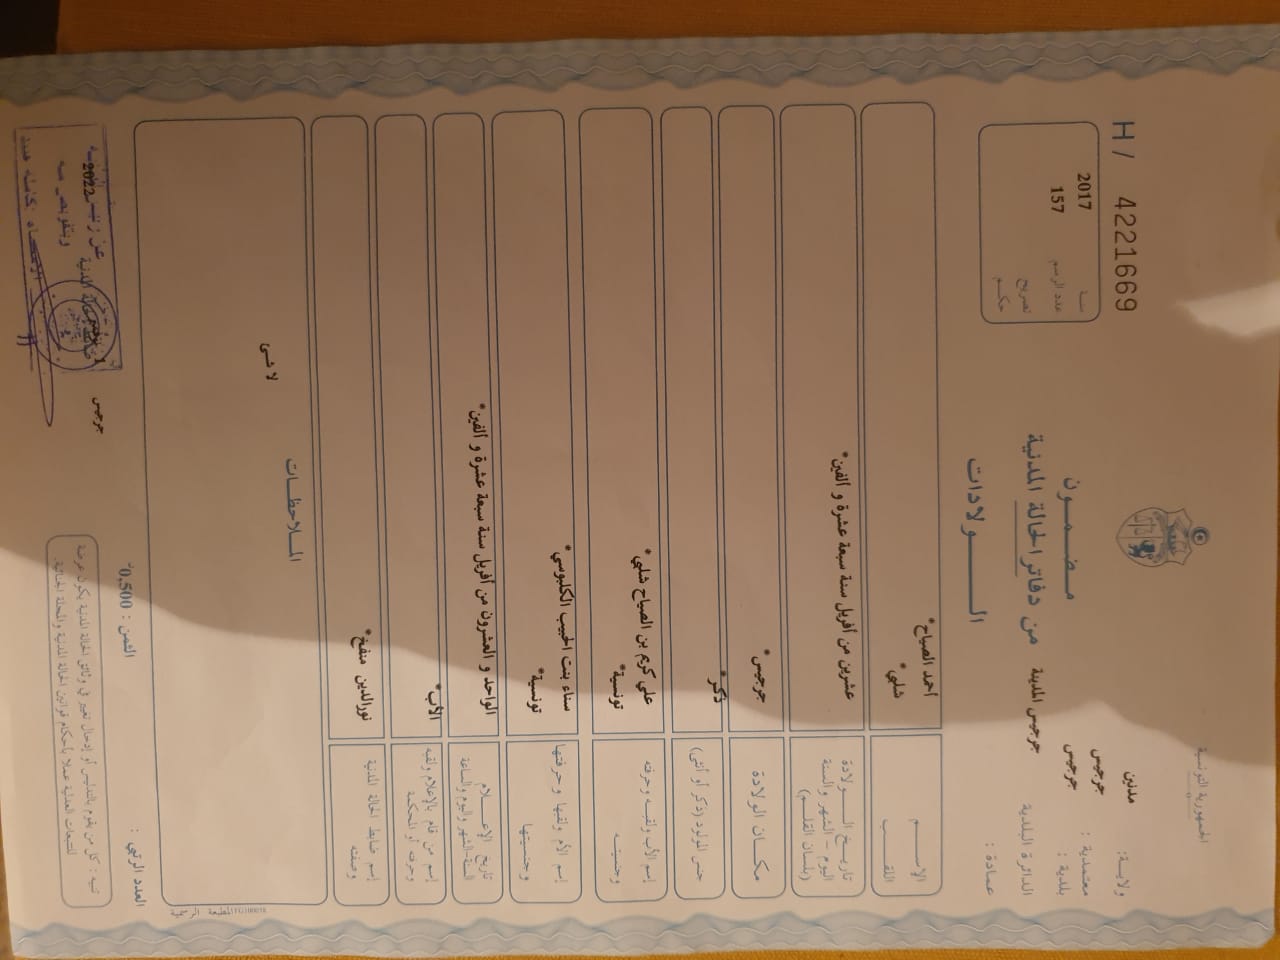 الجمهورية التونسية
ولاية: مدنين
معتمدية : جرجيس
بلدية : جرجيس
الدائرة البلدية جرجيس المدينة
عمادة :
H/ 4221669
سنة 2017
عدد الرسم 157
تصريح
حكم
مضمون
من دفاتر الحالة المدنية
الولادات
الاسم أحمد الصباح*
اللقب شلبي*
تاريخ الولادة
اليوم - الشهر والسنة
(بلسان القلم)
عشرين من أفريل سنة سبعة عشرة و ألفين*
مكان الولادة جرجيس*
جنس المولود (ذكر أو أنثى) ذكر*
إسم الأب ولقبه وحرفته علي كريم بن الصباح شلبي*
وجنسيته تونسية*
إسم الأم ولقبها وحرفتها سناء بنت الحبيب الكلبوسي*
وجنسيتها تونسية*
تاريخ الإعلام
السنة-الشهر واليوم والساعة
الواحد و العشرون من أفريل سنة سبعة عشرة و ألفين*
إسم من قام بالإعلام ولقبه الأب*
وحرفته أو المحكمة
إسم ضابط الحالة المدنية نورالدين منفخ*
وصفته
الملاحظات
لا شئ
المطبعة الرسمية
العدد الرتبي :
الثمن : 0,500
جرجيس
2022
تنبيه : كل من يقوم بالتدليس أو إدخال تغيير في وثائق الحالة المدنية يكون عرضة
للتتبعات العدلية عملا بأحكام قوانين الحالة المدنية والمجلة الجنائية